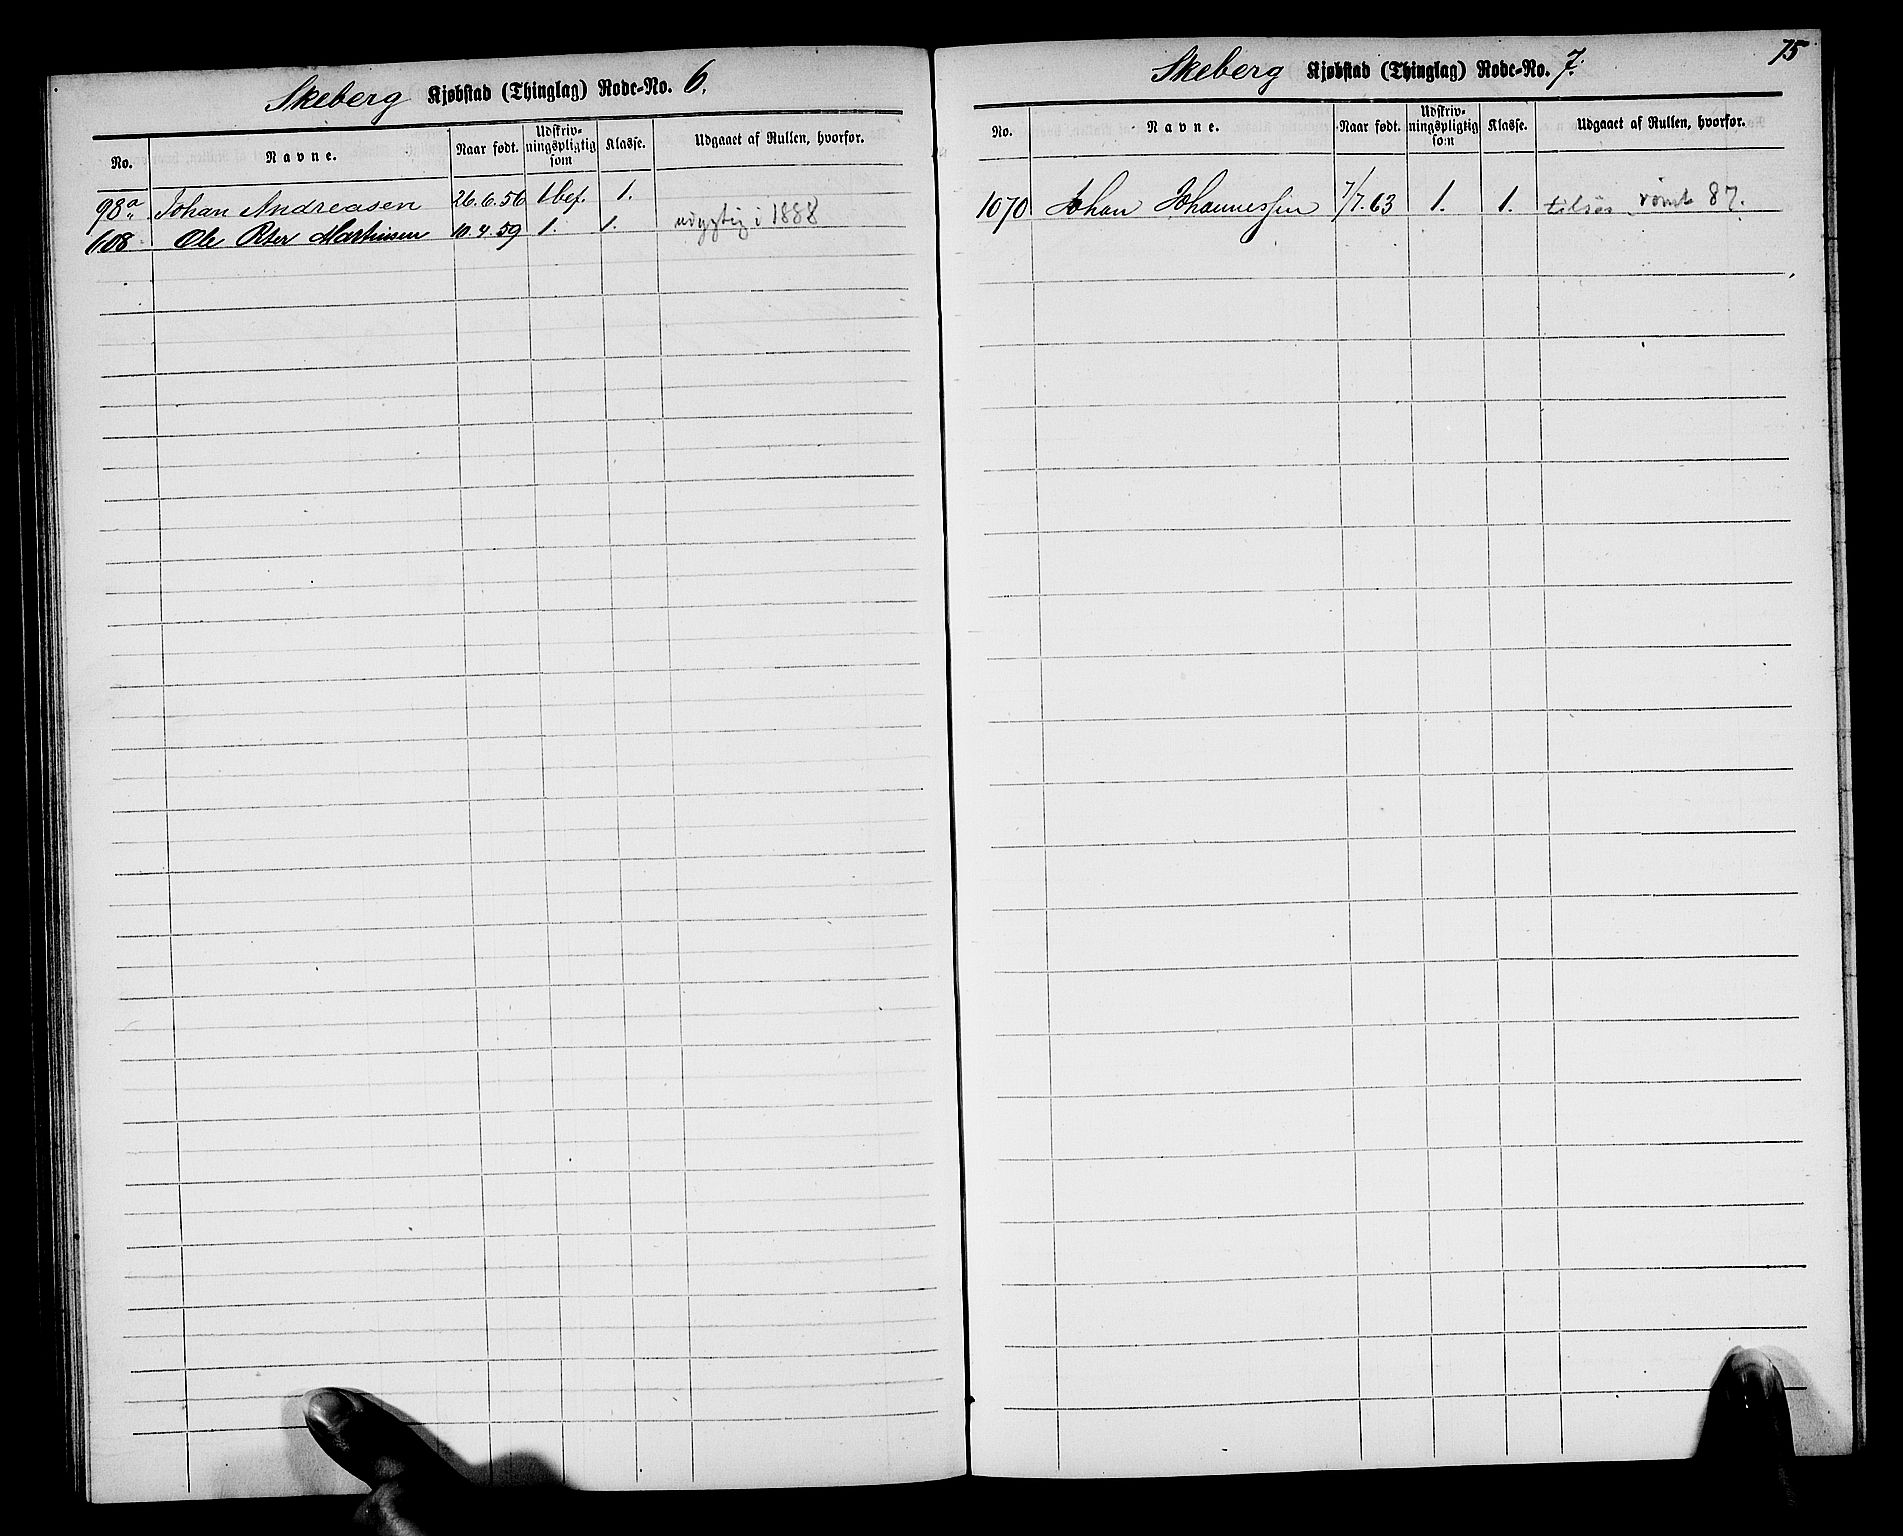 Skeberg Kjøbstad (Thinglag) Rode-No. 6.
No. Navne. Naar født. Udskriv-ningspligtig som Klasse. Udgaaet af Rullen, hvorfor.
98a Johan Andreasen 26.6.56 1 bef. 1.
608 Ole Peter Martinsen 10.4.59 1. 1. i 1888
75
Skeberg Kjøbstad (Thinglag) Rode-No. 7.
No. Navne. Naar født. Udskriv-ningspligtig som Klasse. Udgaaet af Rullen, hvorfor.
1070 Johan Johannessen 7/7.63 1. 1. tilsøs rømt 87.